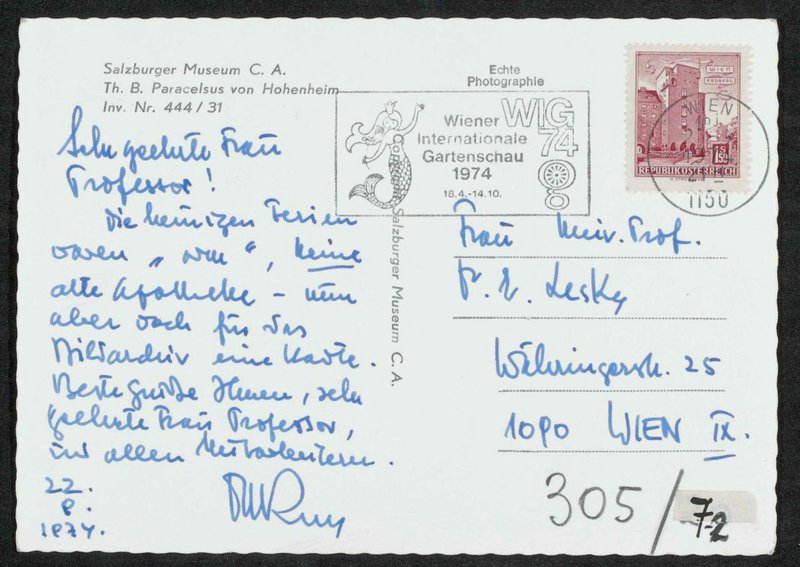 Salzburger Museum C. A.
Th. B. Paracelsus von Hohenheim
Inv. Nr. 444 / 31
Echte
Photographie
Wiener
Internationale
Gartenschau
1974
18.4.-14.10.
WIG
74
WIEN
ERDBERG
1.50
REPUBLIK ÖSTERREICH
WIEN
1150
Copyright Salzburger Museum C. A.
Sehr geehrte Frau
Professor!
Die heurigen Ferien
waren „ “, keine
alte Apotheke – nun
aber doch für das
Bildarchiv eine Karte.
Beste Grüße Ihnen, sehr
geehrte Frau Professor,
und allen Mitarbeitern.
22.
8.
1974.
Frau Univ. Prof.
Dr. E. Lesky
Währingerstr. 25
1090 WIEN IX.
305/72